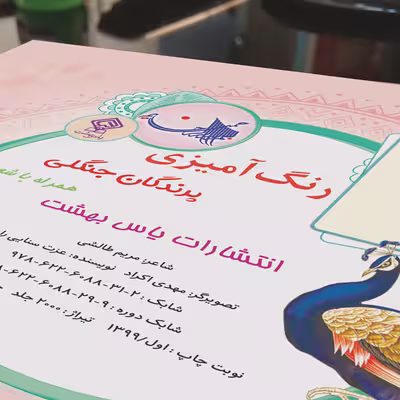 رنگ آمیزی
پرندگان جنگلی
همراه با شعر
انتشارات یاس بهشت
شاعر: مریم طالشی
تصویرگر: مهدی اکراد نویسنده: عزت سنایی را
شابک: ۲-۲۱-۶۰۸۸-۶۲۲-۹۷۸
شابک دوره: ۹-۲۹-۶۰۸۸-۶۲۲
نوبت چاپ: اول/۱۳۹۹ تیراژ: ۲۰۰۰ جلد